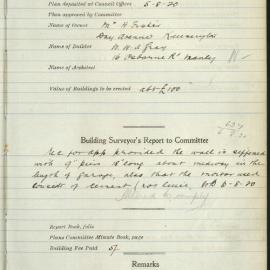 Plan deposited at Council Offices 5-8-20
Plan approved by Committee
Name of Owner Mr H
Day Avenue Kensington
Name of Builder W. W. Gray
16 Osborne Rd Manly
Name of Architect
Value of Buildings to be erected abt £100
Building Surveyor's Report to Committee
Rec for app provided the wall is stiffened
with 9" piers 18" long about midway in the
length of garage, also that the mortar used
consists of cement & 6-8-20
Report Book, folio
Plans Committee Minute Book, page
Building Fee Paid 5/-
Remarks